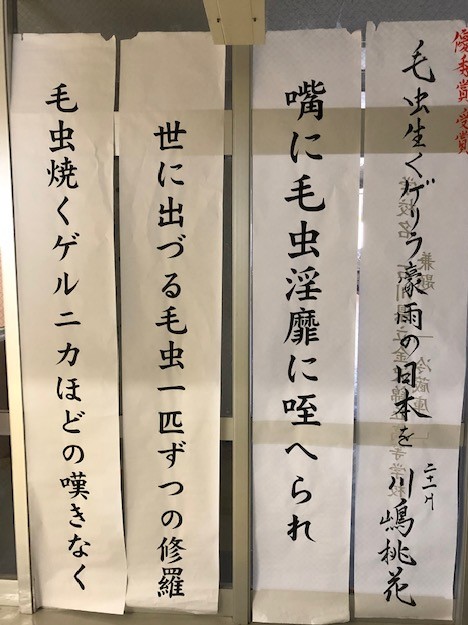 優秀賞受賞
毛虫生くゲリラ豪雨の日本を
川嶋桃花
兼題「冷蔵庫」
学校名
嘴に毛虫淫靡に咥へられ
世に出づる毛虫一匹ずつの修羅
毛虫焼くゲルニカほどの嘆きなく